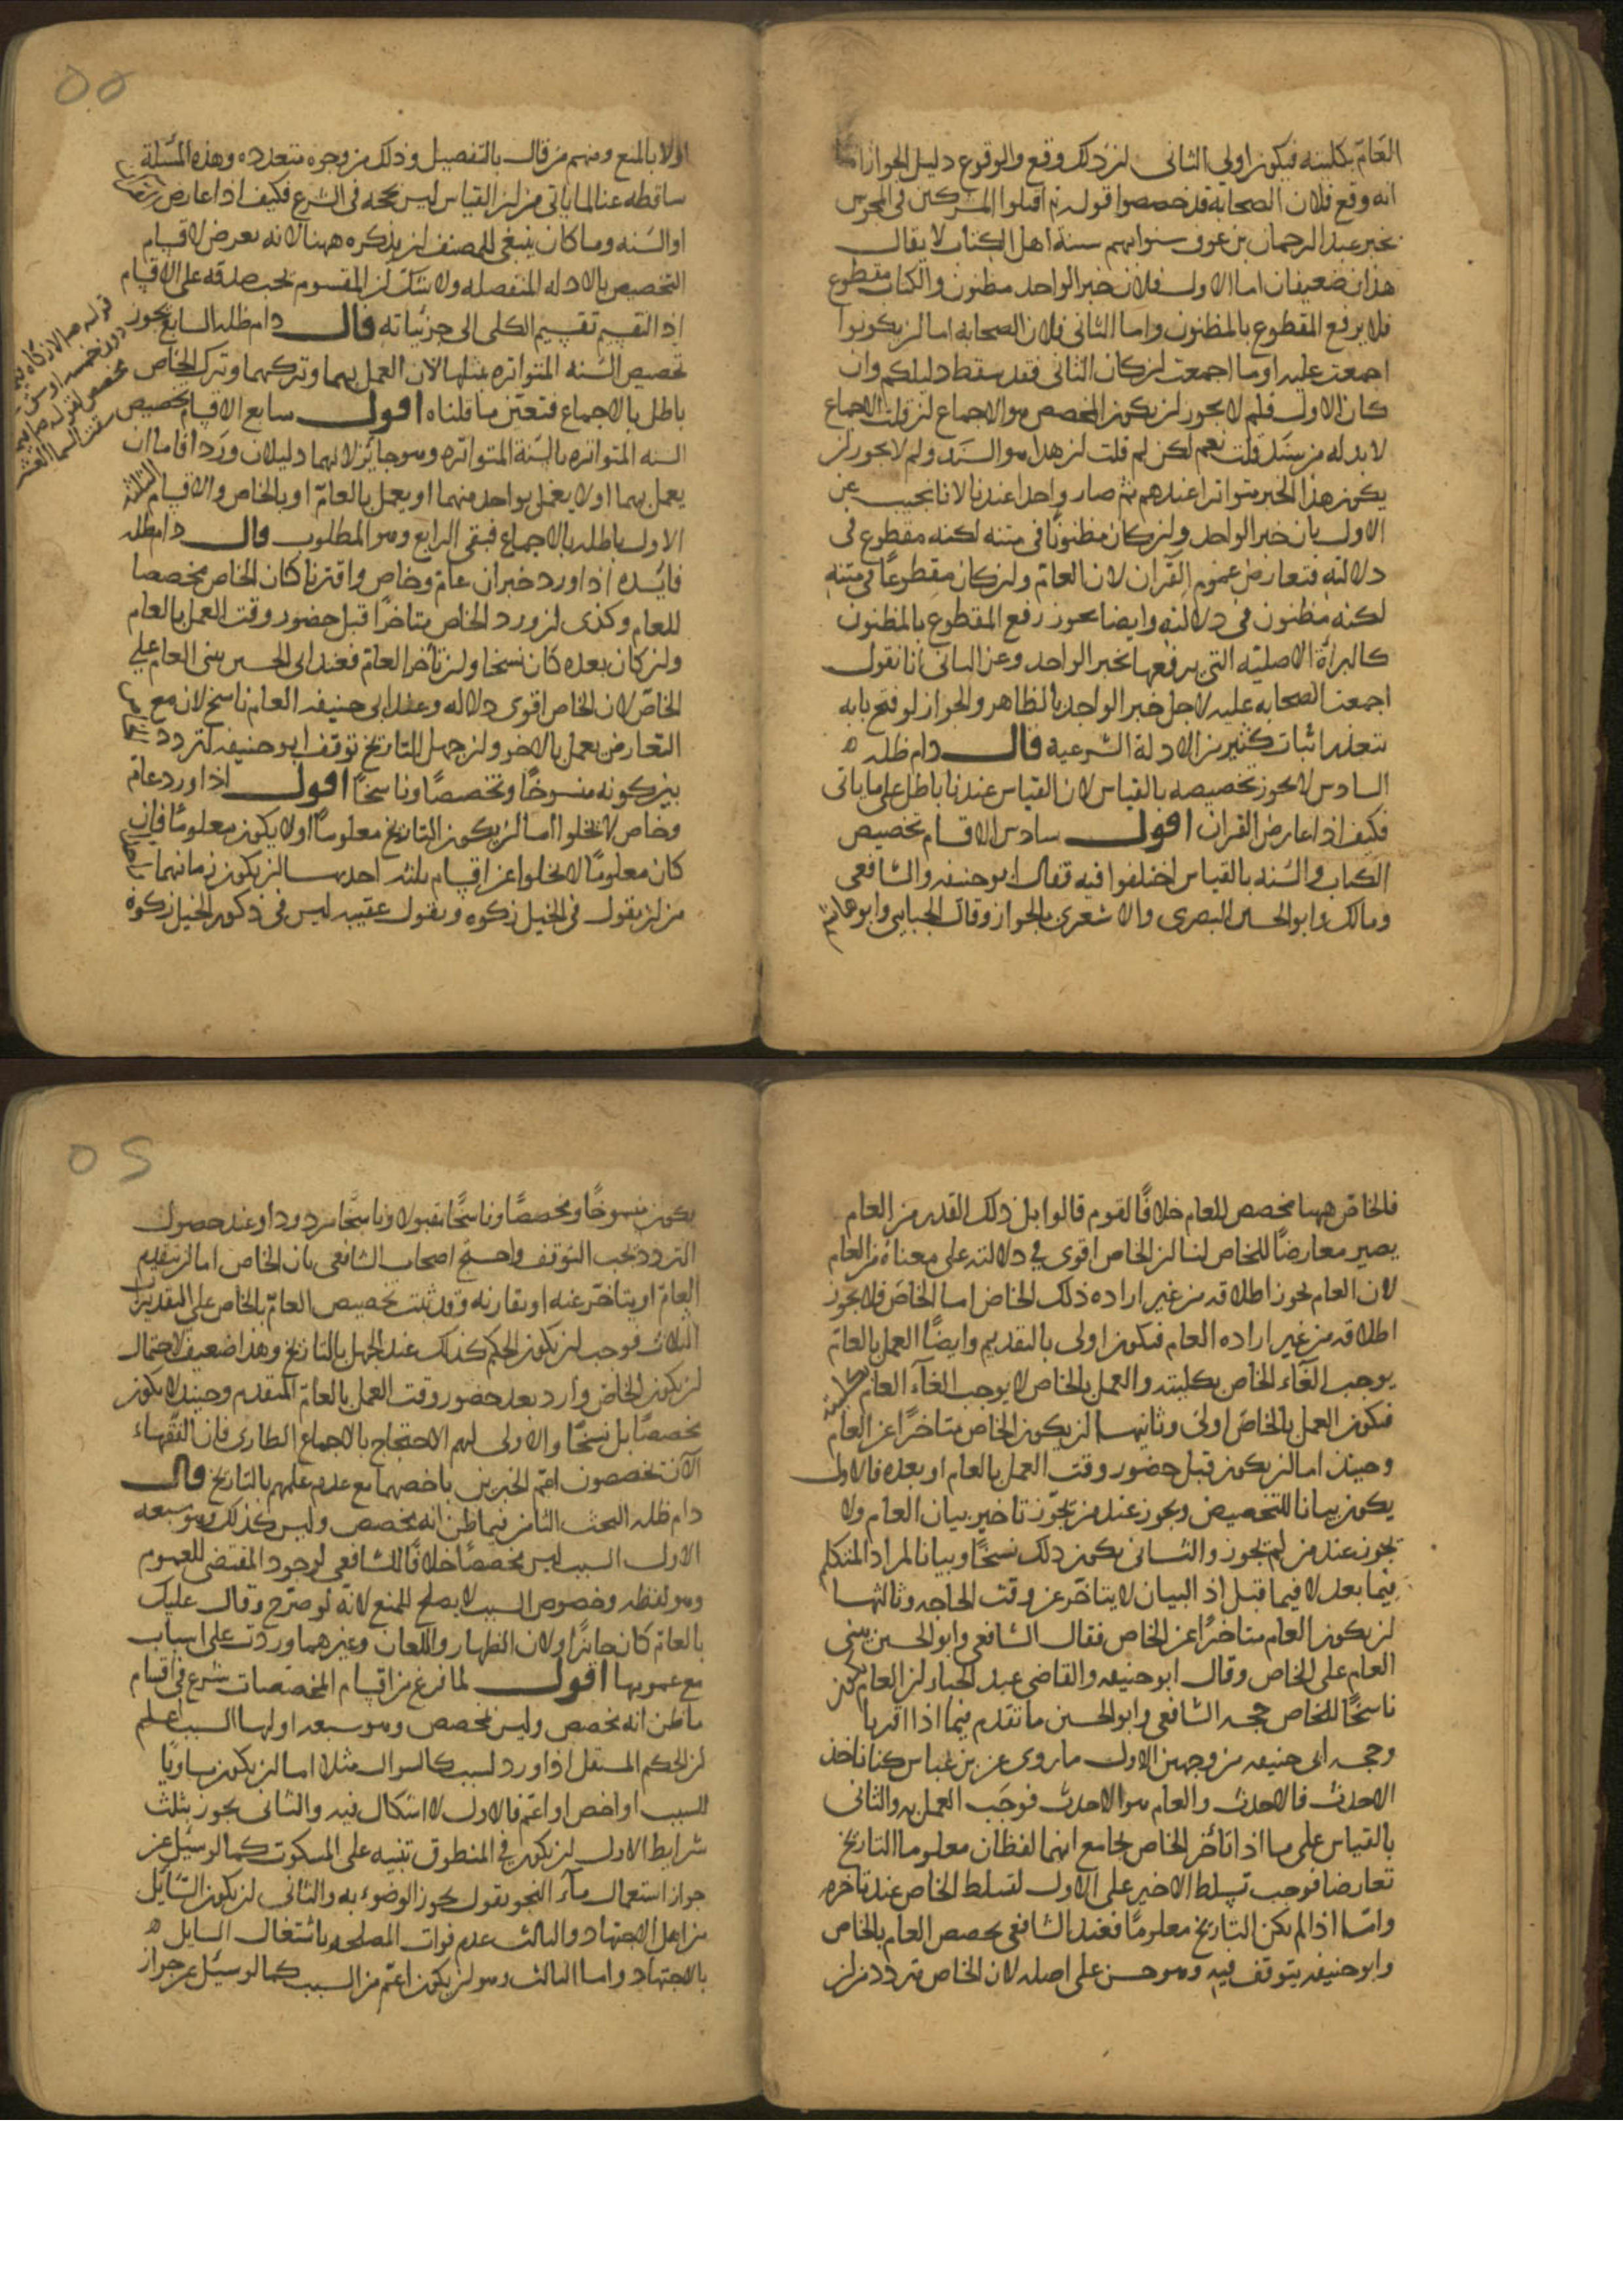 العامّ بكليته فيكون اولى الثانى لن ذلك وقع والوقوع دليل الجواز اما
انه وقع فلان الصحابة قد خصصوا قوله تع اقتلوا المشركين فى المجوس
بخبر عبد الرحمان بن عوف سنوا بهم سنة اهل الكتاب لا يقال
هذان ضعيفان اما الاول فلان خبر الواحد مظنون والكتاب مقطوع
فلا يرفع المقطوع بالمظنون واما الثانى فلان الصحابه اما لن يكونوا
اجمعت عليه او ما اجمعت لن كان الثانى فقد سقط دليلكم وان
كان الاول فلم لا يجوز لن يكون المخصص هو الاجماع لن قلت الاجماع
لا بد له من سند قلت نعم لكن لم قلت لن هذا هو السند ولم لا يجوز لن
يكون هذا الخبر متواترا عندهم ثم صار واحدا عندنا لانا نجيب عن
الاول بان خبر الواحد ولن كان مظنونًا فى متنه لكنه مقطوع فى
دلالته فتعارض عموم القرآن لان العامّ ولن كان مقطوعًا فى متنه
لكنه مظنون فى دلالته وايضا يجوز رفع المقطوع بالمظنون
كالبرأة الاصليّه التى يرفعها بخبر الواحد وعن الثانى انا نقول
اجمعت الصحابه عليه لاجل خبر الواحد بالظاهر والجواز لو فتح بابه
تتعذر اثبات كثير من الادلة الشرعيه قال دام ظله
السادس لا يجوز تخصيصه بالقياس لان القياس عندنا باطل على ما ياتى
فكيف اذا عارض القران اقول سادس الاقسام تخصيص
الكتاب والسنه بالقياس اختلفوا فيه فقال ابو حنيفه والشافعى
ومالك وابو الحسين البصرى والاشعرى بالجواز وقال الجبايى وابو هاشم
اولا بالمنع ومنهم من قال بالتفصيل وذلك من وجوه متعدده وهذه المسئلة
ساقطه عنا لما ياتى من لن القياس ليس بحجه فى الشرع فكيف اذا عارض
او السنه وما كان ينبغى للمصنف لن يذكره ههنا لانه تعرض لاقسام
التخصيص بالادله المنفصله ولا شك لن المقسوم يجب صدقه على الاقسام
اذ التقسيم تقسيم الكلى الى جزئياته قال دام ظله السابع يجوز
تخصيص السنه المتواتره بمثلها لان العمل بهما وتركهما وترك الخاص
باطل بالاجماع فتعين ما قلناه اقول سابع الاقسام تخصيص
السنه المتواتره بالسنة المتواتره وهو جائز لانهما دليلان وردا فاما ان
يعمل بهما او لا يعمل بواحد منهما او يعمل بالعامّ او بالخاص والاقسام الثلثة
الاول باطله بالاجماع فبقى الرابع وهو المطلوب قال دام ظله
فايده اذا ورد خبران عام وخاص واقترنا كان الخاص مخصصا
للعام وكذى لن ورد الخاص متاخرًا قبل حضور وقت العمل بالعام
ولن كان بعده كان نسخا ولن تأخر العام فعند ابى الحسين يبنى العام على
الخاصّ لان الخاص اقوى دلاله وعند ابى حنيفه العام ناسخ لان مع
التعارض يعمل بالاخر ولن جهل التاريخ توقف ابو حنيفه لتردد
بين كونه منسوخًا ومخصصًا وناسخًا اقول اذا ورد عام
وخاص لا يخلوا اما لن يكون التاريخ معلومًا او لا يكون معلومًا فان
كان معلومًا لا يخلوا عن اقسام ثلثه احدها لن يكون زمانهما
من لن يقول فى الخيل زكوه ويقول عقيبه ليس فى ذكور الخيل زكوة
قوله ع لا زكاه فيما
دون خمسه اوسق
مخصص لقوله ع فيما
سقت السما العشر
فالخاصّ ههنا مخصص للعام خلافًا لقوم قالوا بل ذلك القدر من العام
يصير معارضًا للخاص لنا لن الخاص اقوى فى دلالته على معناه من العام
لان العام يجوز اطلاقه من غير اراده ذلك الخاص اما الخاص فلا يجوز
اطلاقه من غير اراده العام فيكون اولى بالتقديم وايضًا العمل بالعام
يوجب الغاء الخاص بكليته والعمل بالخاص لا يوجب الغآء العام بكليته
فيكون العمل بالخاص اولى وثانيها لن يكون الخاص متاخرًا عن العام
وحينئذ اما لن يكون قبل حضور وقت العمل بالعام او بعده فالاول
يكون بيانا للتخصيص ويجوز عند من يجوّز تاخير بيان العام ولا
يجوز عند من لم يجوز والثانى يكون ذلك نسخًا وبيانا لمراد المتكلم
فيما بعد لا فيما قبل اذ البيان لا يتاخر عن وقت الحاجه وثالثها
لن يكون العام متاخرًا عن الخاص فقال الشافعى وابو الحسين يبنى
العام على الخاص وقال ابو حنيفه والقاضى عبد الجبار لن العام يكون
ناسخًا للخاص حجه الشافعى وابو الحسين ما تقدم فيما اذا اقترنا
وحجه ابى حنيفه من وجهين الاول ما روى عن بن عباس كنا ناخذ
الاحدث فالاحدث والعام هو الاحدث فوجب العمل به والثانى
بالقياس على ما اذا تأخر الخاص بجامع انهما لفظان معلوما التاريخ
تعارضا فوجب تسلط الاخير على الاول لتسلط الخاص عند تاخره
وامّا اذا لم يكن التاريخ معلومًا فعند الشافعى يخصص العام بالخاص
وابو حنيفه يتوقف فيه وهو حسن على اصله لان الخاص متردد من لن
يكون منسوخًا ومخصصًا وناسخًا مقبولا وناسخًا مردودا وعند حصول
التردد يجب التوقف واحتج اصحاب الشافعى بان الخاص اما لن يتقدم
العامّ او يتاخّر عنه او يقارنه وقد ثبت تخصيص العامّ بالخاص على التقديرات
الثلاث فوجب لن يكون الحكم كذلك عند الجهل بالتاريخ وهذا ضعيف لاحتمال
لن يكون الخاص وارد بعد حضور وقت العمل بالعام المتقدم وحينئذ لا يكون
مخصصًا بل نسخًا والاولى لهم الاحتجاج بالاجماع الطارى فان الفقهاء
الآن يخصصون اعم الخبرين باخصهما مع عدم علمهم بالتاريخ قال
دام ظله البحث الثامن فيما ظن انه مخصص وليس كذلك وهو سبعه
الاول السبب ليس مخصصًا خلافًا للشافعى لوجود المقتضى للعموم
وهو لفظه وخصوص السبب لا يصلح للمنع لانه لو صرّح وقال عليك
بالعام كان جائزا ولان الظهار واللعان وغيرهما وردت على اسباب
مع عمومها اقول لما فرغ من اقسام المخصصات شرع فى اقسام
ما ظن انه مخصص وليس بمخصص وهو سبعه اولها السبب اعلم
لن الحكم المستقل اذا ورد لسبب كالسوال مثلا اما لن يكون مساويًا
للسبب او اخص او اعم فالاول لا اشكال فيه والثانى يجوز بثلث
شرايط الاول لن يكون فى المنطوق تنبيه على المسكوت كما لو سئل عن
جواز استعمال مآء البحر يقول يجوز الوضوء به والثانى لن يكون السّايل
من اهل الاجتهاد والثالث عدم فوات المصلحه باشتغال السايل
بالاجتهاد واما الثالث وهو لن يكون اعم من السبب كما لو سئل عن جواز